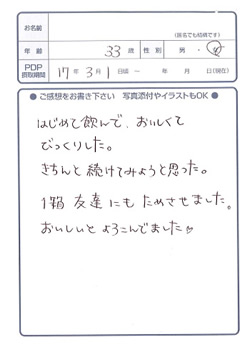 お名前
(匿名でも結構です)
年齢 33歳 性別 男・女
PDP
摂取期間 17年3月1日頃～ 年 月 日(現在)
● ご感想をお書き下さい 写真添付やイラストもOK ●
はじめて飲んで、おいしくて
びっくりした。
きちんと続けてみようと思った。
1箱 友達にも ためさせました。
おいしいと よろこんでました